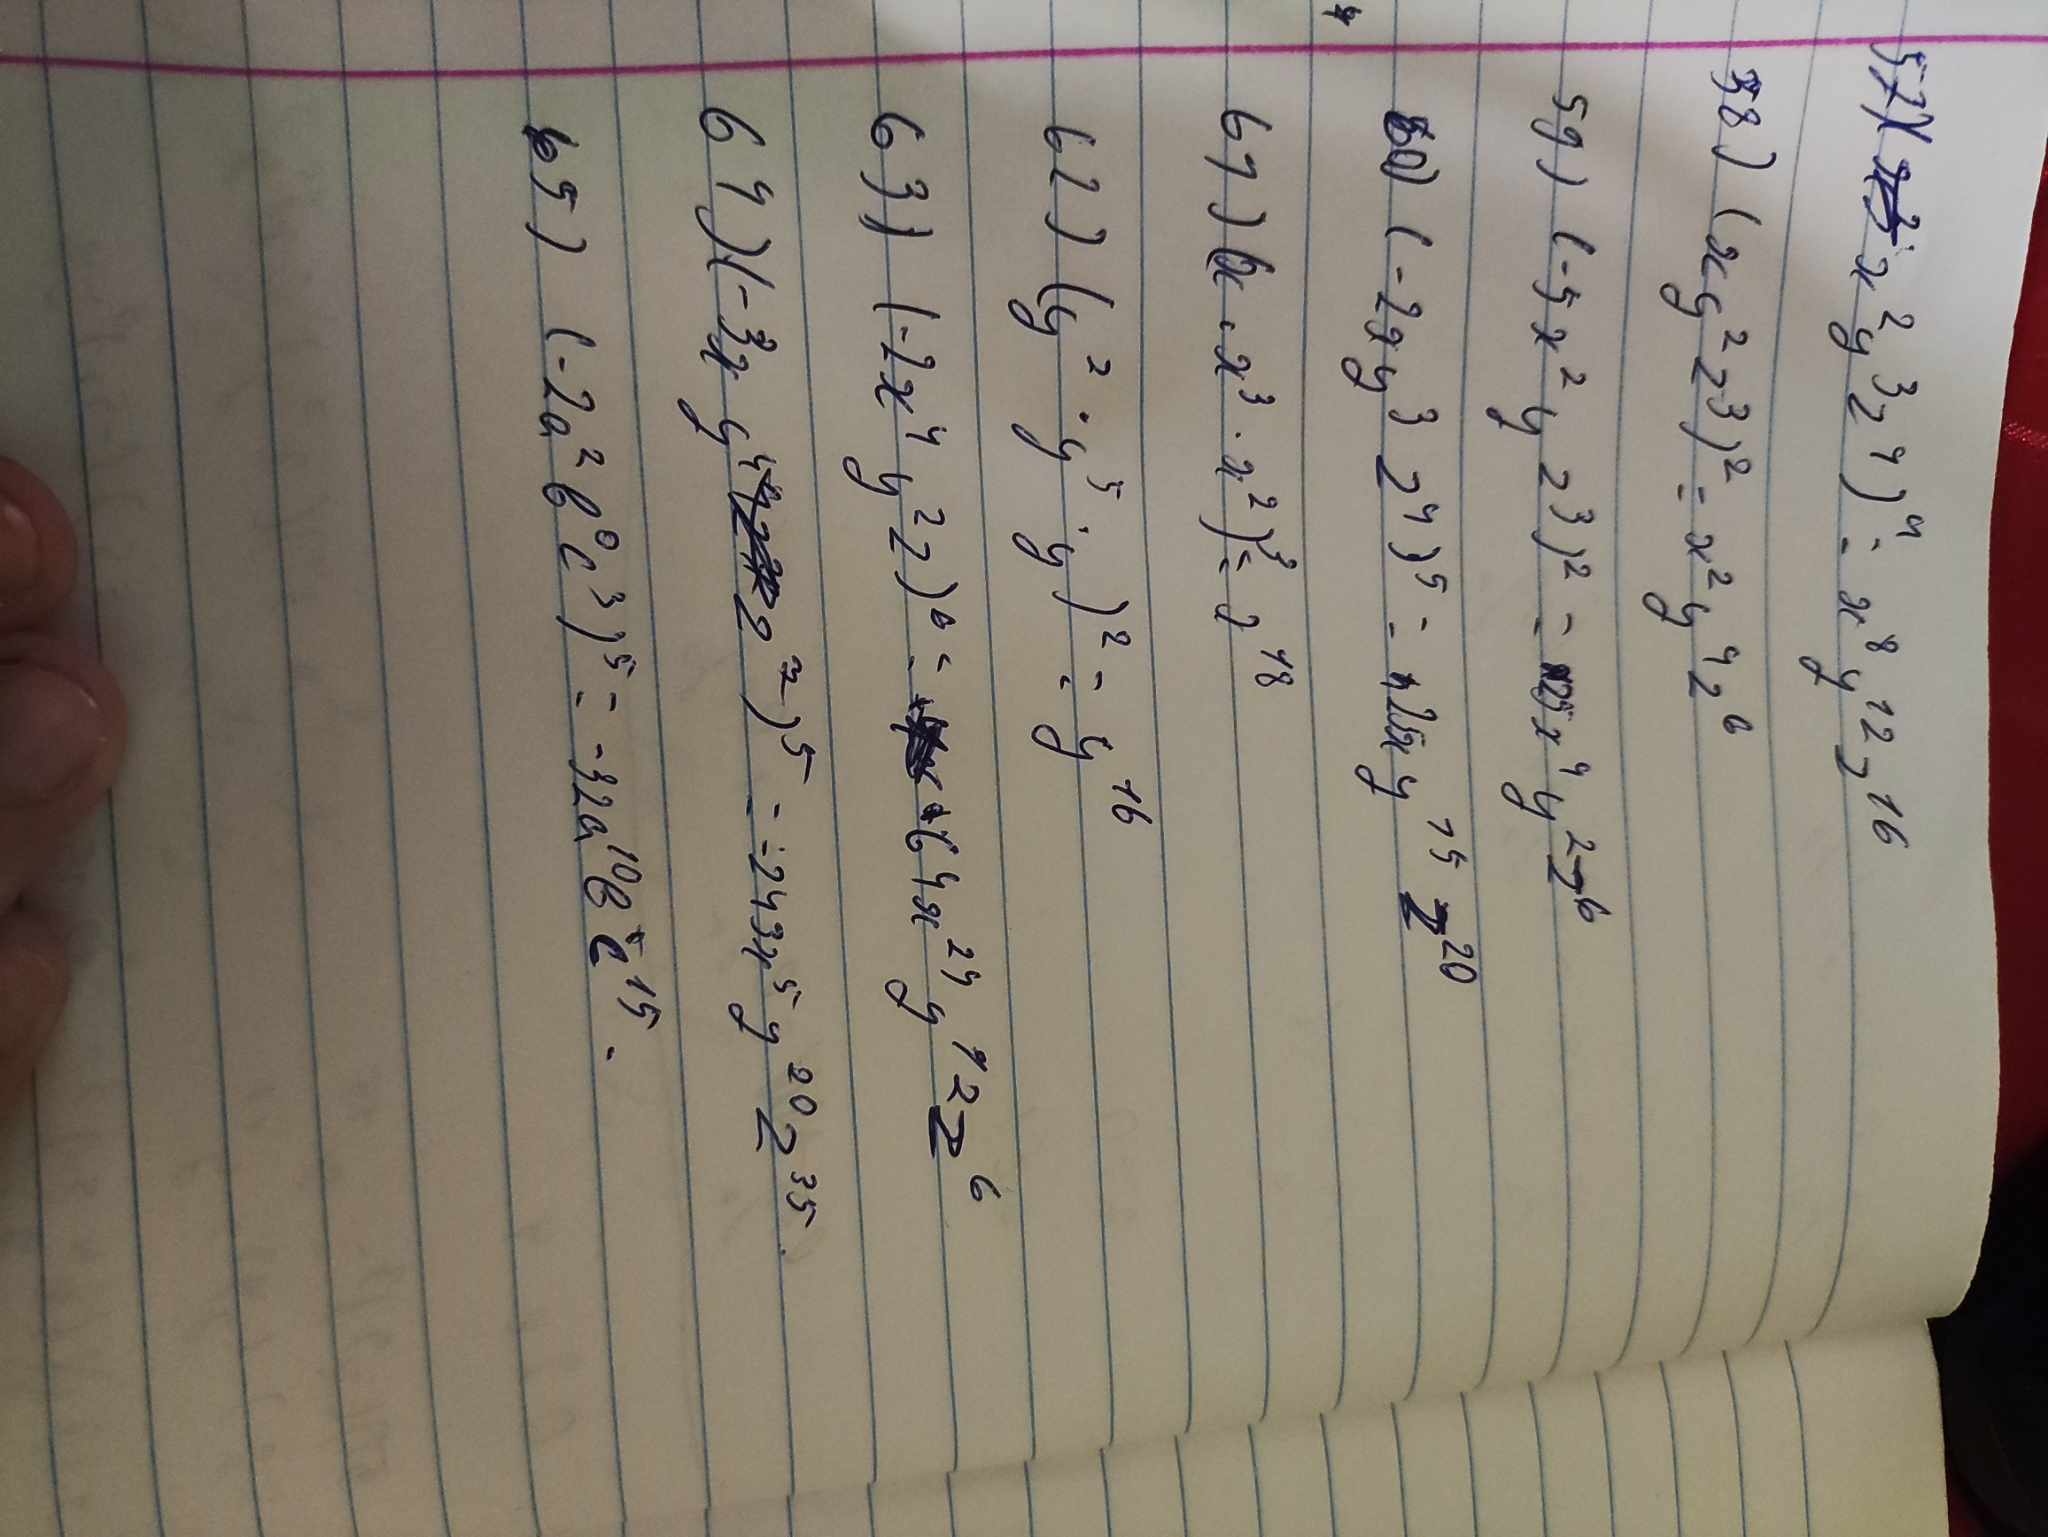 57) (x²y³z⁴)⁴ = x⁸y¹²z¹⁶
58) (xy²z³)² = x²y⁴z⁶
59) (-5x²yz³)² = 25x⁴y²z⁶
60) (-2xy³z⁴)⁵ = y¹⁵z²⁰
61) (x·x³·x²)³ = x¹⁸
62) (y²·y⁵·y)² = y¹⁶
63) (-2x⁴y²z)⁶ = 64x²⁴y¹²z⁶
64) (-3xy⁴z⁷)⁵ = -243x⁵y²⁰z³⁵.
65) (-2a²b⁰c³)⁵ = -32a¹⁰b c¹⁵.